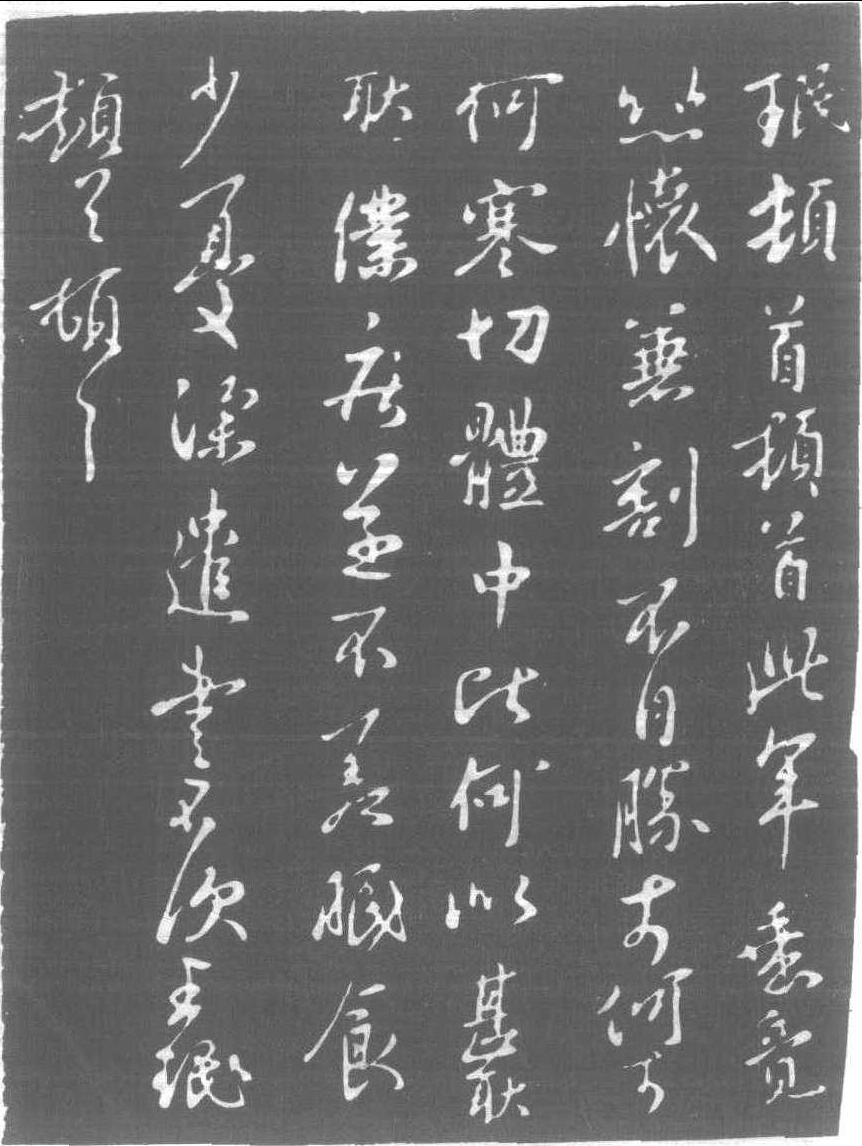 珉頓首頓首此年垂竟
悲懷兼割不自勝奈何奈
何寒切體中比何似甚耿
耿僕疾并不差眠食
少憂深遣書不次王珉
頓首頓首